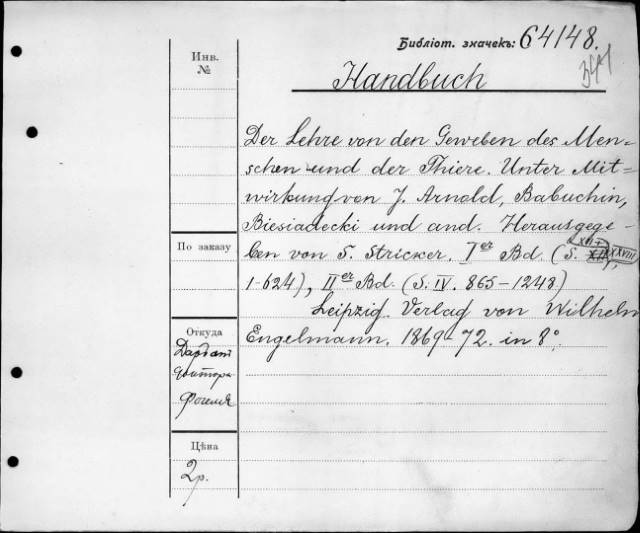 Библіот. значекъ: 64148.
Инв.
№
Handbuch
Der Lehre von den Geweben des Men=
schen und der Thiere. Unter Mit=
wirkung von J. Arnold, Babuchin,
Biesiadecki und and. Herausgege=
ben von S. Stricker. Ier Bd. (S. XXVIII,
1-624), IIer Bd. (S. IV. 865-1248.)
Leipzig. Verlag von Wilhelm
Engelmann. 1869-72. in 8º.
По заказу
Откуда
Цѣна
2р.